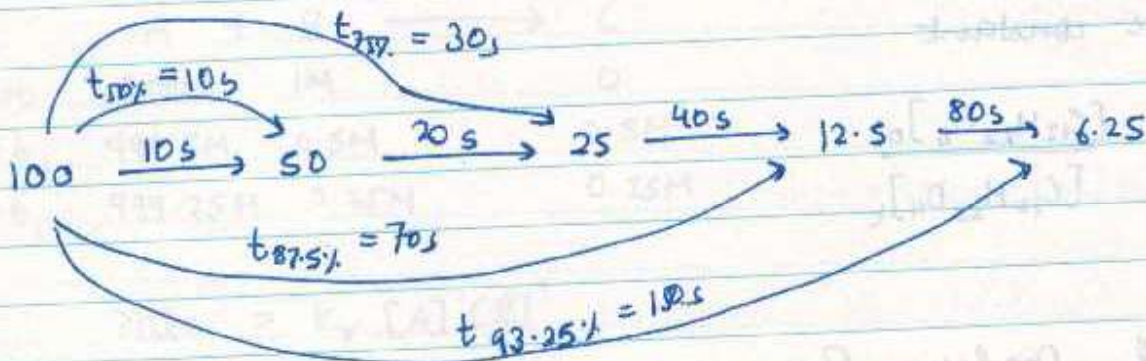 t75% = 30s
t50% = 10s
100 10s 50 20s 25 40s 12.5 80s 6.25
t87.5% = 70s
t 93.25% = 150s